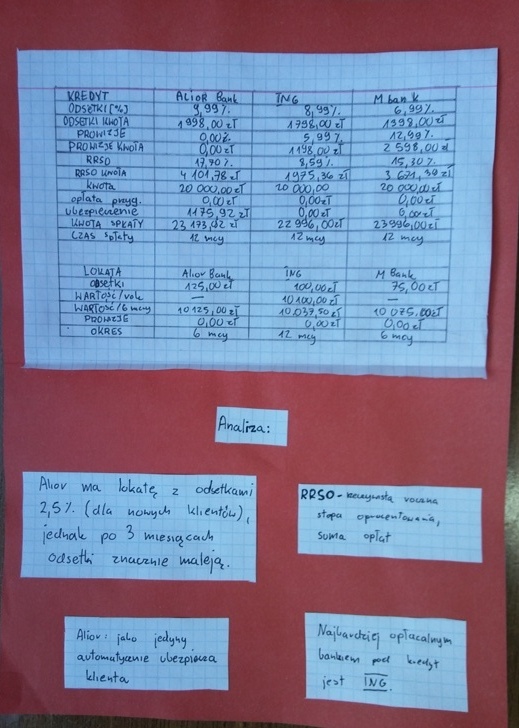 KREDYT Alior Bank ING M bank
ODSETKI [%] 9,99% 8,99% 6,99%
ODSETKI KWOTA 1998,00 zł 1798,00 zł 1398,00 zł
PROWIZJE 0,00% 5,99% 12,99%
PROWIZJE KWOTA 0,00 zł 1198,00 zł 2 598,00 zł
RRSO 17,70% 8,59% 15,30%
RRSO KWOTA 4 101,78 zł 1975,36 zł
KWOTA 20 000,00 zł 20 000,00 20 000,00 zł
opłata przyg. 0,00 zł 0,00 zł 0,00 zł
ubezpieczenie 1175,92 zł 0,00 zł 0,00 zł
KWOTA SPŁATY 23 173,92 zł 22 996,00 zł 23996,00 zł
CZAS spłaty 12 mcy 12 mcy 12 mcy
LOKATA Alior Bank ING M Bank
odsetki 125,00 zł 100,00 zł 75,00 zł
WARTOŚĆ/rok — 10 100,00 zł —
WARTOŚĆ/6 mcy 10 125,00 zł 10 037,50 zł 10 075,00 zł
PROWIZJE 0,00 zł 0,00 zł 0,00 zł
OKRES 6 mcy 12 mcy 6 mcy
Analiza:
Alior ma lokatę z odsetkami
2,5% (dla nowych klientów),
jednak po 3 miesiącach
odsetki znacznie maleją.
RRSO - rzeczywista roczna
stopa oprocentowania,
suma opłat
Alior: jako jedyny
automatycznie ubezpiecza
klienta
Najbardziej opłacalnym
bankiem pod kredyt
jest ING.